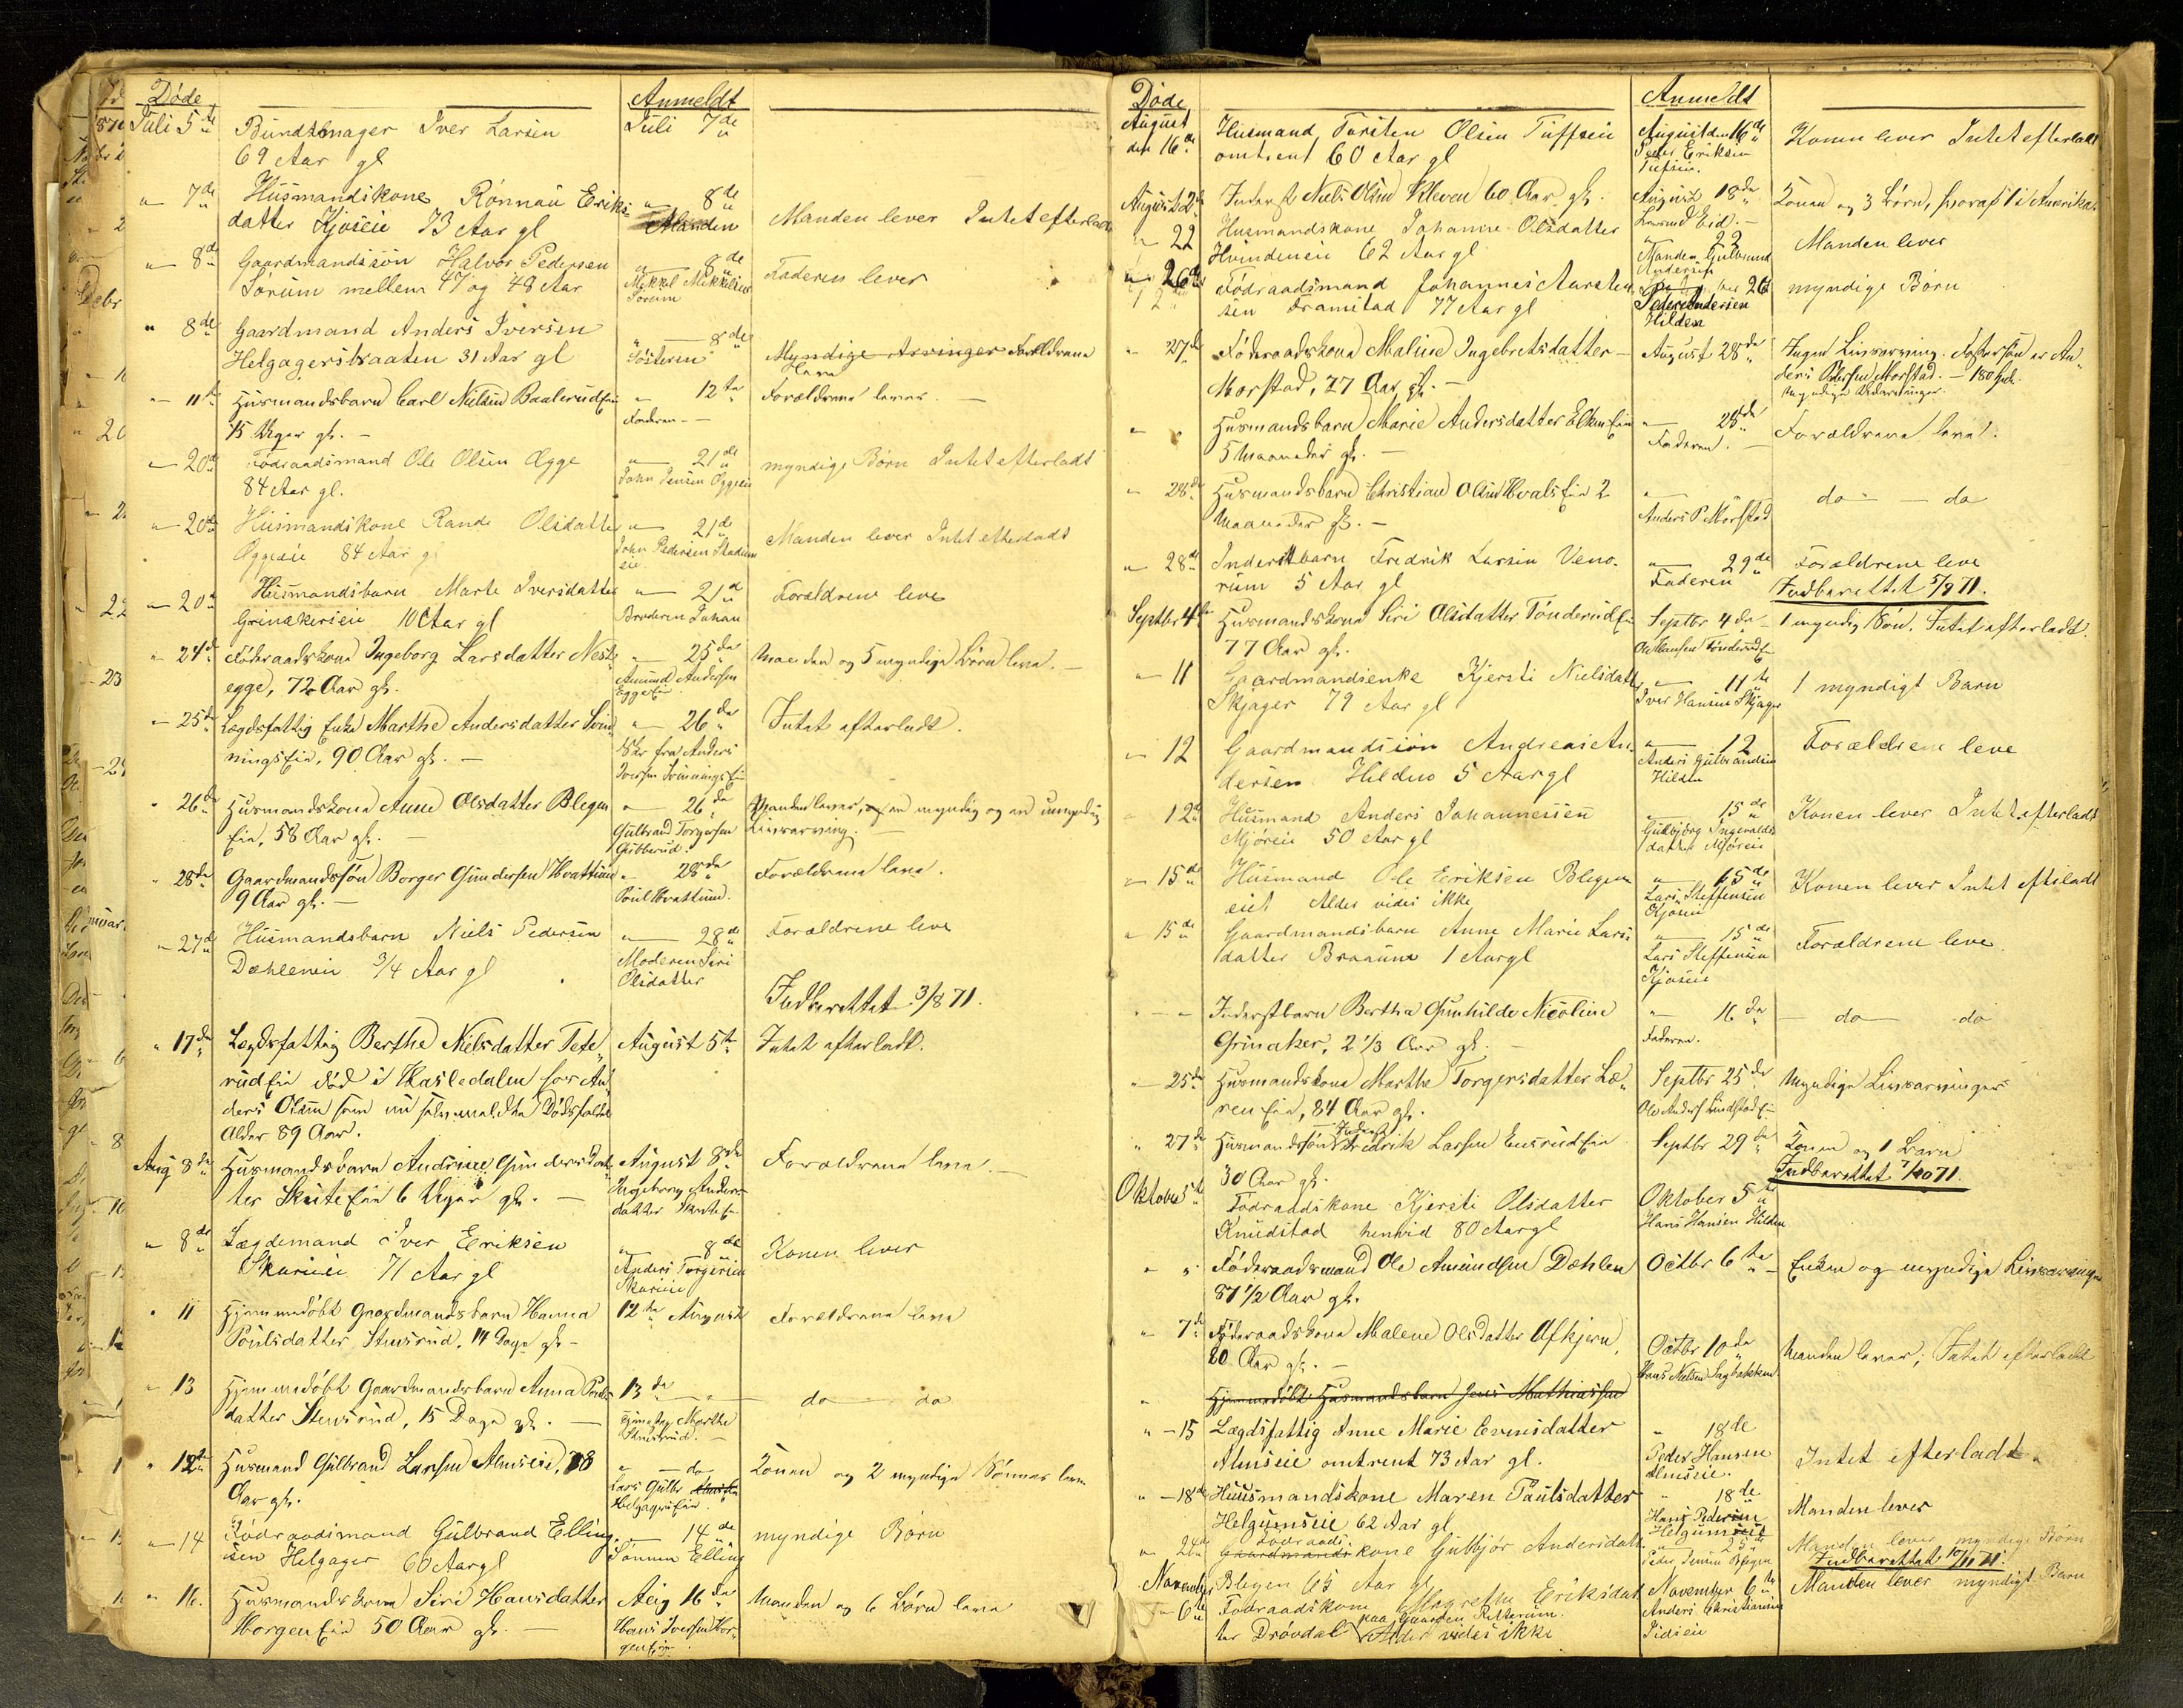 Døde
Anmeldt
Juli 5te
Bundtmager Iver Larsen
69 Aar gl
Juli 7de
" 7de
Husmandskone Rønnau Eriks-
datter Kjoseie 73 Aar gl
" 8de
Manden
Manden lever Intet efterladt
" 8de
Gaardmandssøn Halvor Pedersen
Sørum mellem 47 og 48 Aar
" 8de
Mikkel Mikkelsen
Sørum
Faderen lever
" 8de
Gaardmand Anders Iversen
Helgagerstraaten 31 Aar gl
" 8de
Søsteren
Myndige Arvinger Forældrene
leve
" 11te
Husmandsbarn Carl Nielsen Baalerudeie
15 Uger gl. -
" 12te
Faderen -
Forældrene lever. -
" 20de
Fødraadsmand Ole Olsen Egge
84 Aar gl.
" 21de
John Jensen Eggeeie
myndige Børn Intet efterladt
" 20de
Husmandskone Rande Olsdatter
Eggeeie 84 Aar gl
" 21de
John Pedersen
eie
Manden lever Intet efterladt
" 20de
Husmandsbarn Marte Iversdatter
Grinakerseie 10 Aar gl
" 21de
Broderen Johan
Forældrene leve
" 24de
Føderaadskone Ingeborg Larsdatter Nest-
egge, 72 Aar gl.
" 25de
Amund Andersen
Eggeeie
Manden og 5 myndige Børn leve. -
" 25de
Lægdsfattig Enke Marthe Andersdatter Svin-
ningseie, 90 Aar gl. -
" 26de
Anders
Iversen Svinningseie
Intet efterladt.
" 26de
Husmandskone Anne Olsdatter Blegen
eie, 58 Aar gl. -
" 26de
Gulbrand Torgersen
Gubberud.
Manden lever, en myndig og en umyndig
Livsarving. -
" 28de
Gaardmandssøn Borger Gundersen Hvattum
9 Aar gl. -
" 28de
Poul Hvattum.
Forældrene leve.
" 27de
Husmandsbarn Niels Pedersen
Dæhleneie 3/4 Aar gl
" 28de
Moderen Siri
Olsdatter
Forældrene leve
Indberettet 3/8 71.
" 17de
Lægdsfattig Berthe Nielsdatter Tete-
rudeie død i Hasledalen hos An-
ders Olsen som nu først anmeldte Dødsfaldet
Alder 89 Aar.
August 5te
Intet efterladt.
Aug 8de
Husmandsbarn Andrine Gundersdat-
ter Skuteeie 6 Uger gl. -
August 8de
Ingeborg Anders-
datter Skuteeie
Forældrene leve. -
" 8de
Lægdemand Iver Eriksen
Skarieie 71 Aar gl
" 8de
Anders Torgersen
Skarieie
Konen lever
" 11
Hjemmedøbt Gaardmandsbarn Hanna
Poulsdatter Stensrud, 14 Dage gl -
12te August
Forældrene leve
" 13
Hjemmedøbt Gaardmandsbarn Anna Pouls-
datter Stensrud, 15 Dage gl. -
13de
Marthe
Stensrud. -
do do
" 12te
Husmand Gulbrand Larsen Almseie, 78
Aar gl.
" do
Lars Gulbr
Helgagerseie
Konen og 2 myndige Sønner leve
" 14
Fødraadsmand Gulbrand Elling-
sen Helgager 60 Aar gl
" 14de
Sønnen Elling
myndige Børn
" 16.
Husmandskone Siri Hansdatter
Horgeneie 50 Aar gl. -
Aug 16de
Hans Iversen Hor-
geneie.
Manden og 6 Børn leve
Døde
Anmeldt
August
den 16de
Husmand Torsten Olsen Tuffseie
omtrent 60 Aar gl
August den 16de
Peder Eriksen
Tufseie.
Konen lever Intet efterladt
August 2de
Inderst Niels Olsen Kleven 60 Aar gl.
August 18de
Eid. -
Konen og 3 Børn, hvoraf 1 i Amerika
" 22
Husmandskone Johanne Olsdatter
Hvindeneie 62 Aar gl
" 22
Manden Gulbrand
Andersen
Manden lever
" 26de
Fødraadsmand Johannes Aarsten-
sen Framstad 77 Aar gl
26
Peder Andersen
Hilden
myndige Børn
" 27de
Føderaadskone Maline Ingebretsdatter
Morstad, 77 Aar gl. -
August 28de
Ingen Livsarving. Fostersøn er An-
ders Pedersen Morstad. -
myndige Udarvinger.
" "
Husmandsbarn Marie Andersdatter
5 Maaneder gl. -
" 28de
Faderen. -
Forældrene leve.
" 28de
Husmandsbarn Christian Olsen Hvalseie 2
Maaneder gl. -
"
Anders P. Morstad
do - do
" 28de
Inderstbarn Fredrik Larsen Veno-
rum 5 Aar gl
" 29de
Faderen
Forældrene leve
Indberettet 5/9 71.
Septbr 4de
Husmandskone Siri Olsdatter Tønderudeie
77 Aar gl.
Septbr 4de
Ole Hansen Tønderudeie
1 myndig Søn. Intet efterladt.
" 11
Gaardmandsenke Kjersti Nielsdatter
Skjager 79 Aar gl
" 11te
Iver Hansen Skjager
1 myndigt Barn
" 12
Gaardmandssøn Andreas An-
dersen Hilden 5 Aar gl
" 12
Anders Gulbrandsen
Hilden
Forældrene leve
" 12te
Husmand Anders Johannessen
Mjøreie 50 Aar gl
" 15de
Gulbjørg Ingevalds
datter Mjøreie
Konen lever Intet efterladt
" 15de
Husmand Ole Eriksen Blegen
eiet Alder vides ikke
" 15de
Lars Steffensen
Kjoseie
Konen lever Intet efterladt
" 15de
Gaardmandsbarn Anne Marie Lars-
datter Braaune 1 Aar gl
" 15de
Lars Steffensen
Kjoseie
Forældrene leve.
" - "
Inderstbarn Berthe Gunhilde Nicoline
Grinaker, 2 1/3 Aar gl. -
" 16de
Faderen.
- do - do
" 25de
Husmandskone Marthe Torgersdatter Læ-
reneie, 84 Aar gl.
Septbr 25de
Ole Anders Lindstadeie
Myndige Livsarvinger
" 27de
Husmandssøn Inderst Fredrik Larsen Ensrudeie
30 Aar gl.
Septbr 29de
Konen og 1 Barn
Indberettet 7/10 71.
Oktober 5te
Fødraadskone Kjersti Olsdatter
Knudstad henved 80 Aar gl
Oktober 5te
Hans Hansen Hilden
" "
Føderaadsmand Ole Amundsen Dæhlen
87 1/2 Aar gl.
Octbr 6te
Enken og myndige Livsarvinger
" 7de
Føderaadskone Malene Olsdatter Afkjern,
80 Aar gl. -
Octbr 10de
Hans Nielsen Sagbakken
Manden lever; Intet efterladt
"
Hjemmedøbt Husmandsbarn Jens Mathiassen
" - 15
Lægdsfattig Anne Marie Evensdatter
Almseie omtrent 73 Aar gl.
" 18de
Peder Hansen
Almseie.
Intet efterladt.
" - 18de
Huusmandskone Maren Paulsdatter
Helgumseie 62 Aar gl
" 18de
Hans Pedersen
Helgumseie
Manden lever
" 24de
Fødraads-
Gaardmandskone Gubbjør Andersdatter
Blegen 65 Aar gl
" 25de
Peder Jensen Blegen
Manden lever myndige Børn
Indberettet 10/11 71.
November
" 6te
Fødraadskone Magrethe Eriksdat-
ter Drøvdal paa Gaarden Rekkerum. Alder vides ikke
November 6te
Anders Christiansen
Sidseie
Manden lever myndigt Barn